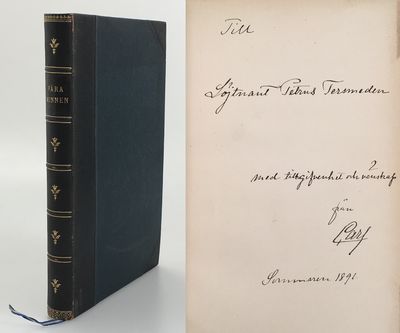 VÅRA
MINNEN
Till
Löjtnant Petrus Tersmeden
med tillgifvenhet och vänskap
från
Carl
Sommaren 1891